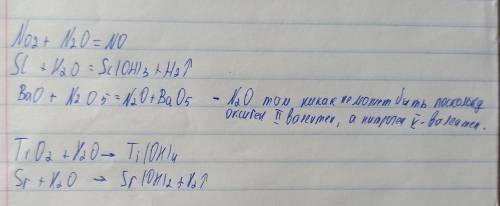 No2 + N2O = NO
Sc + H2O = Sc(OH)3 + H2↑
BaO + N2O5 = N2O + BaO5 - N2O там никак не может быть поскольку
оксиген II валентен, а нитроген V-валентен.
TiO2 + H2O → Ti(OH)4
Sr + H2O → Sr(OH)2 + H2↑